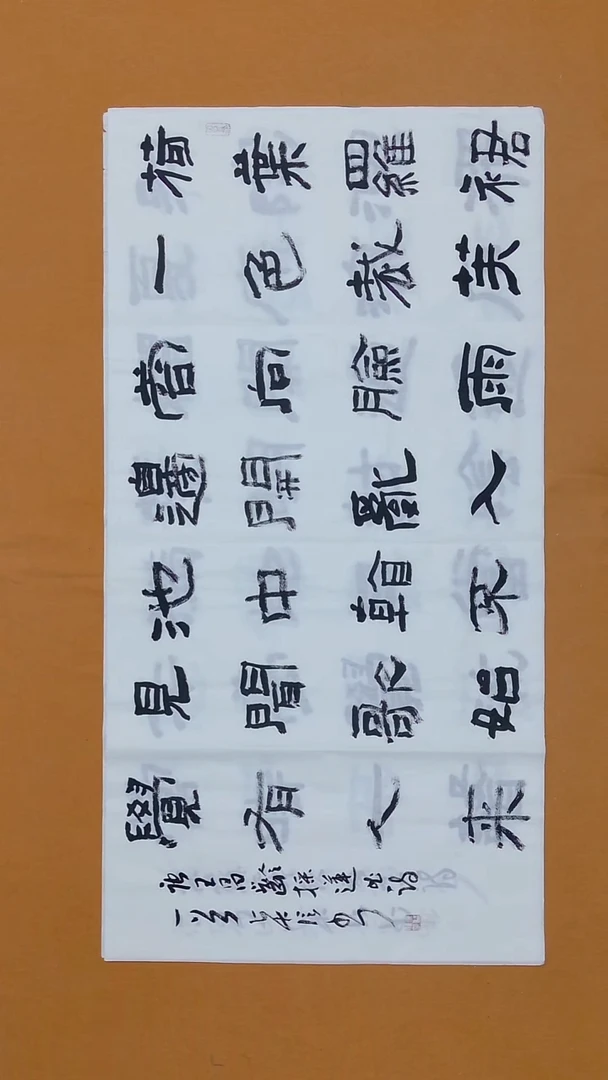 荷葉羅裙
一色裁芙
蓉向臉兩
邊開亂入
池中看不
見聞歌始
覺有人来
唐王昌齡採蓮曲詩